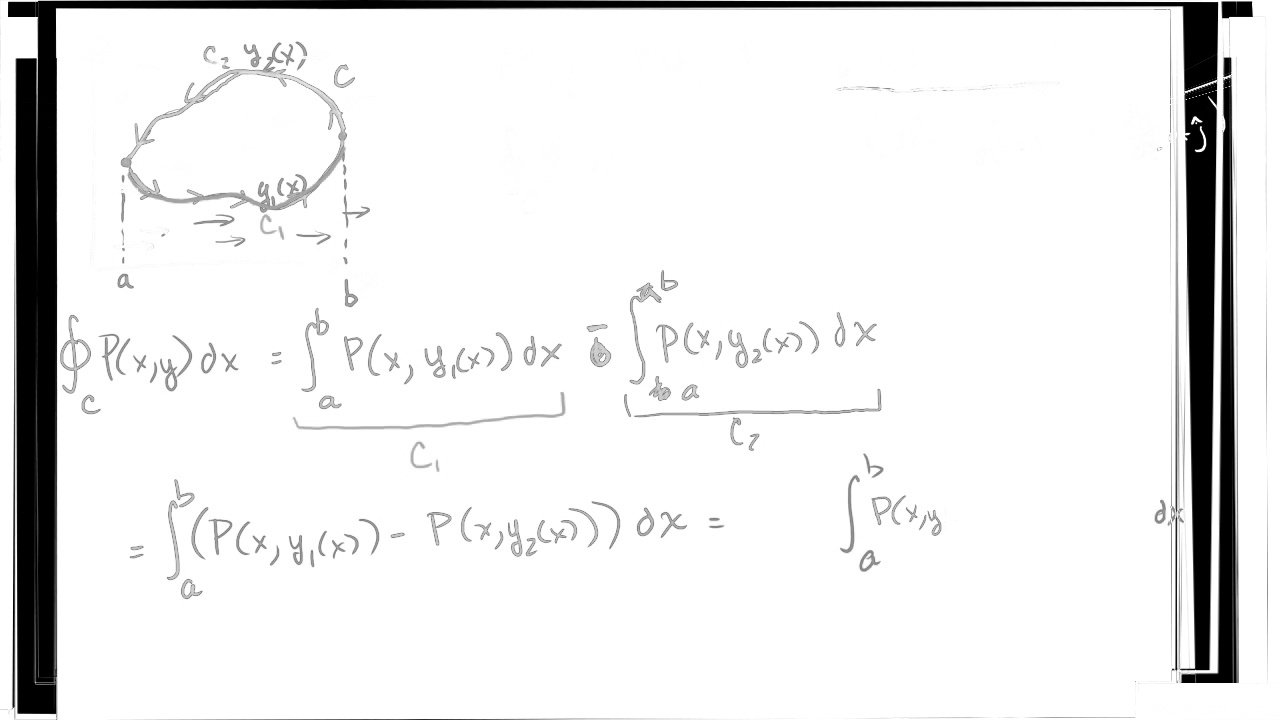 C₂ y₂(x) C
y₁(x)
C₁
a b
∮_C P(x,y) dx = ∫_a^b P(x, y₁(x)) dx - ∫_a^b P(x, y₂(x)) dx
C₁ C₂
= ∫_a^b (P(x, y₁(x)) - P(x, y₂(x))) dx = ∫_a^b P(x,y dx
+ĵ)